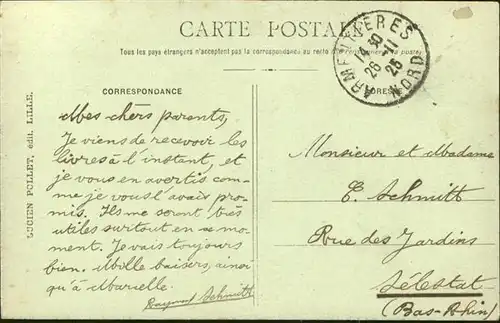 CARTE POSTALE
Tous les pays étrangers n'acceptent pas la correspondance au recto (se renseigner à la poste)
ARMENTIÈRES
14 30
26 - 11
25
NORD
CORRESPONDANCE
ADRESSE
LUCIEN POLLET, édit. LILLE.
Mes chers parents,
Je viens de recevoir les
livres à l'instant, et
je vous en avertis com-
me je vous l'avais pro-
mis. Ils me seront très
utiles surtout en ce mo-
ment. Je vais toujours
bien. Mille baisers, ainsi
qu'à Marielle.
Raymond Schmitt
Monsieur et Madame
E. Schmitt
Rue des Jardins
Sélestat
(Bas-Rhin)